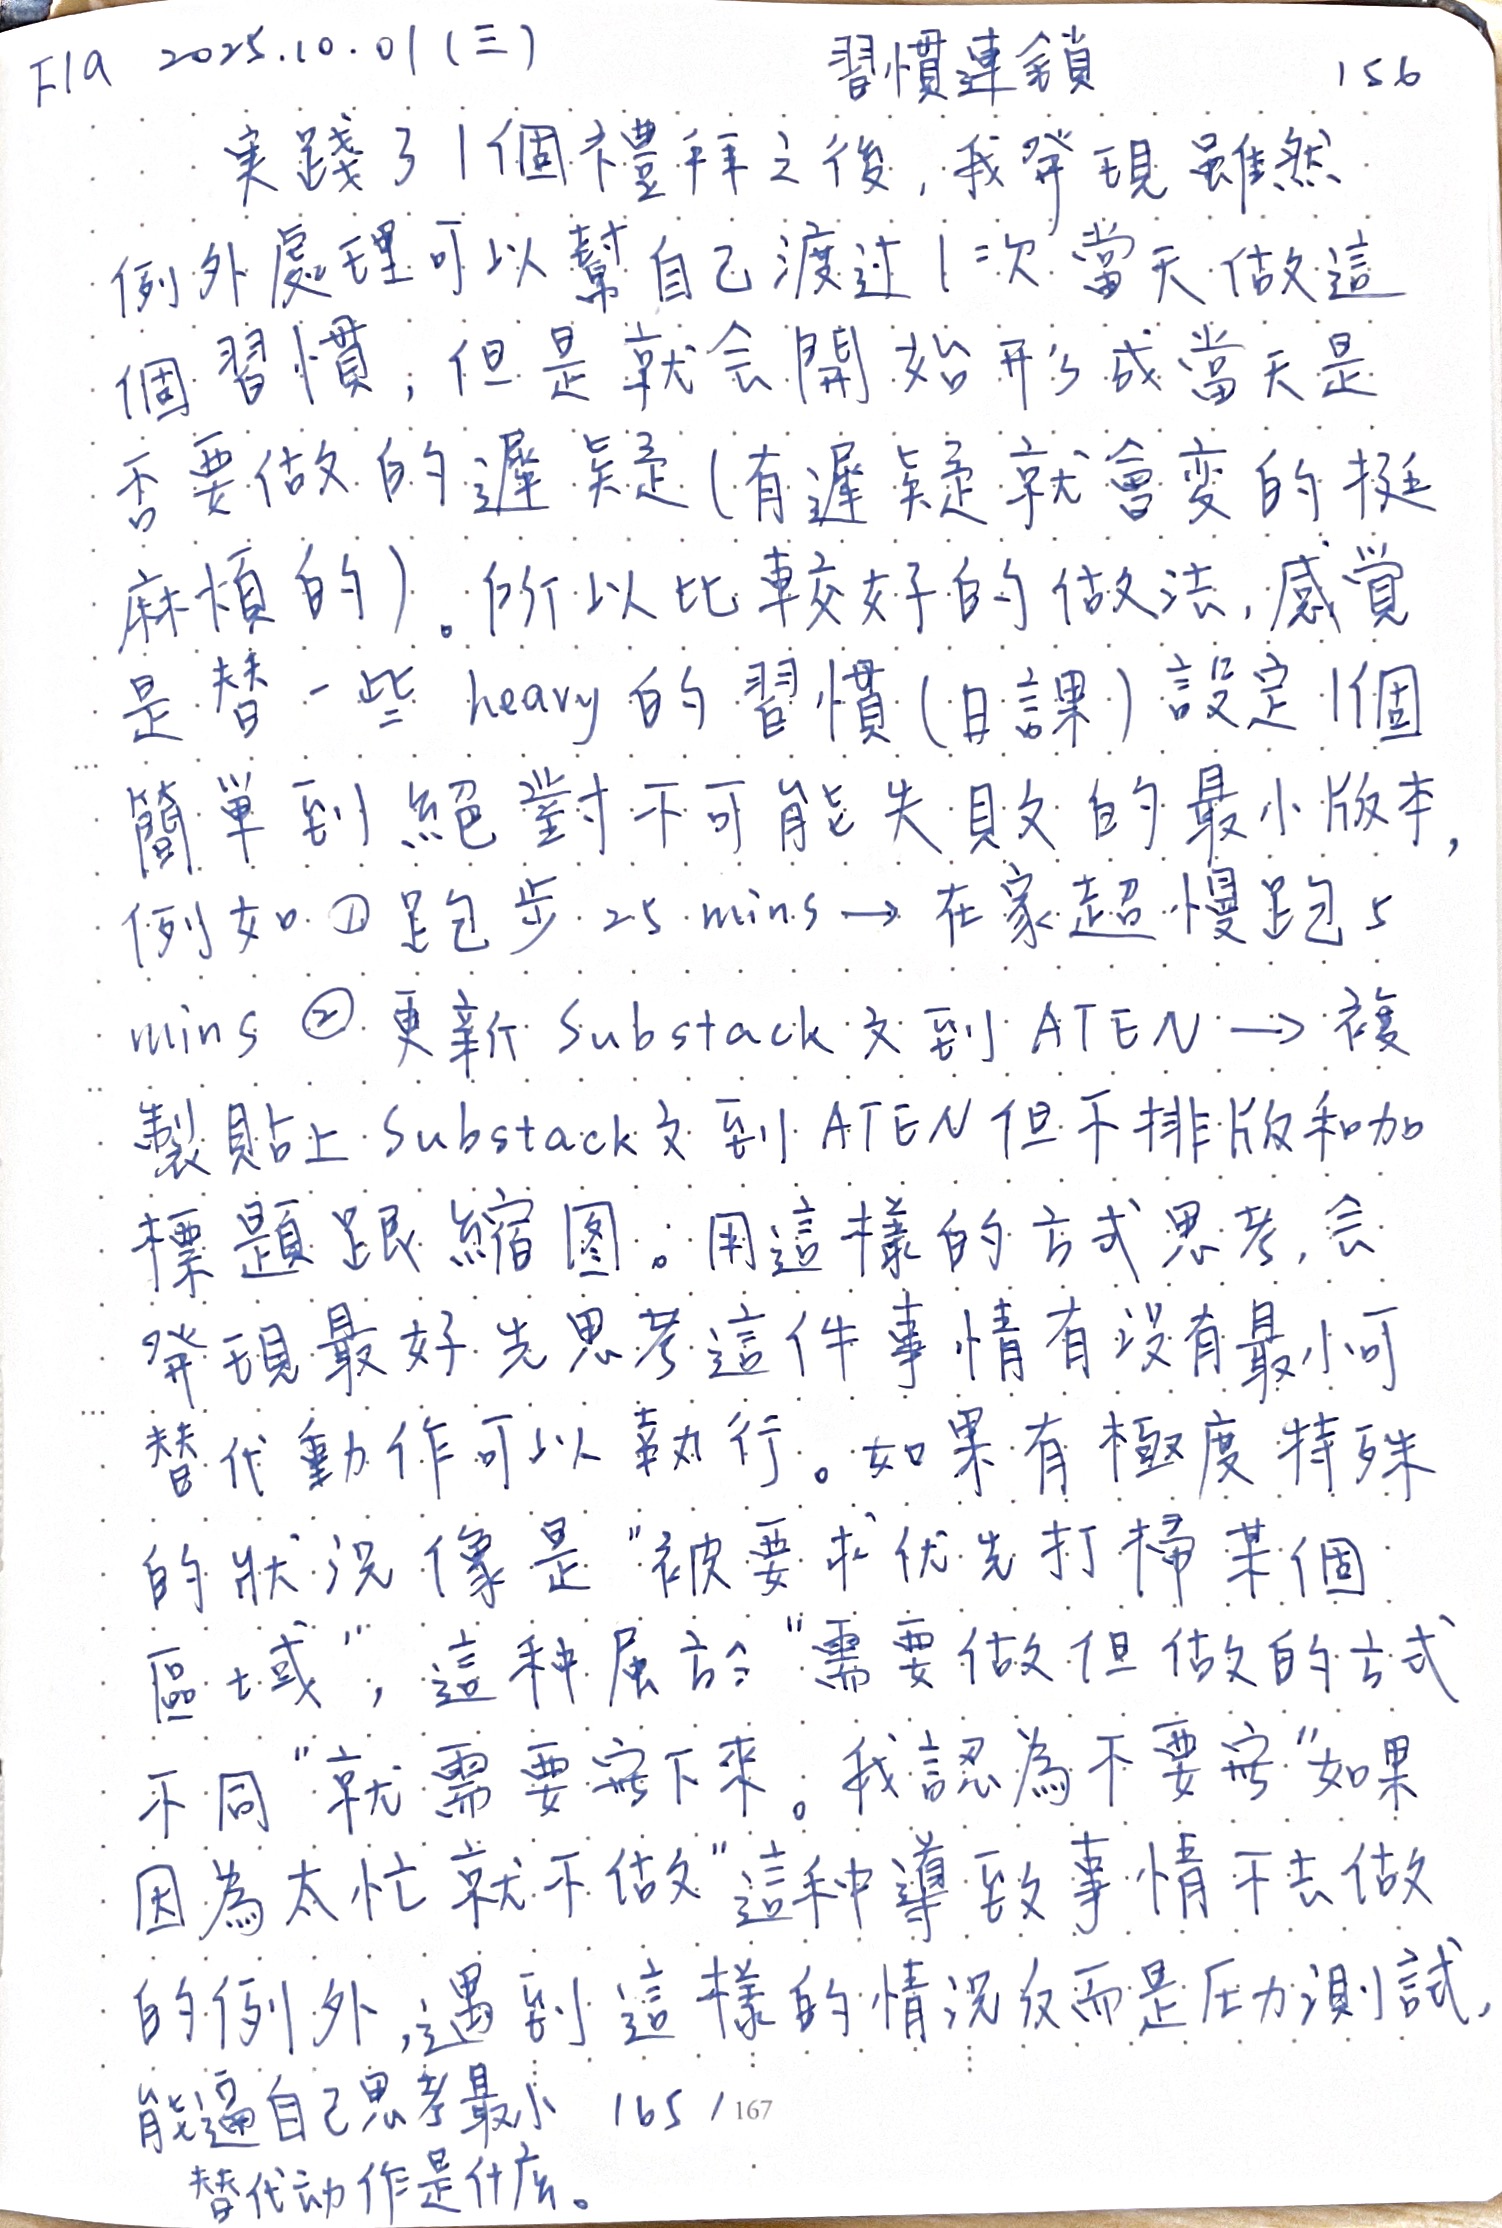 F19 2025.10.01(三) 習慣連鎖 156
実踐了1個禮拜之後,我發現雖然
例外處理可以幫自己渡过1次當天做這
個習慣,但是就会開始形成當天是
否要做的遲疑(有遲疑就會変的挺
麻煩的)。所以比較好的做法,感覚
是替一些heavy的習慣(日課)設定1個
簡單到絕對不可能失敗的最小版本,
例如①跑步25mins→在家超慢跑5
mins②更新Substack文到ATEN→複
製貼上Substack文到ATEN但不排版和加
標題跟縮图。用這樣的方式思考,会
發現最好先思考這件事情有没有最小可
替代動作可以執行。如果有極度特殊
的狀況像是"被要求优先打掃某個
區域",這种属於"需要做但做的方式
不同"就需要寫下來。我認為不要寫"如果
因為太忙就不做"這种導致事情不去做
的例外,遇到這樣的情況反而是圧力測試,
能逼自己思考最小 165/167
替代动作是什麼。